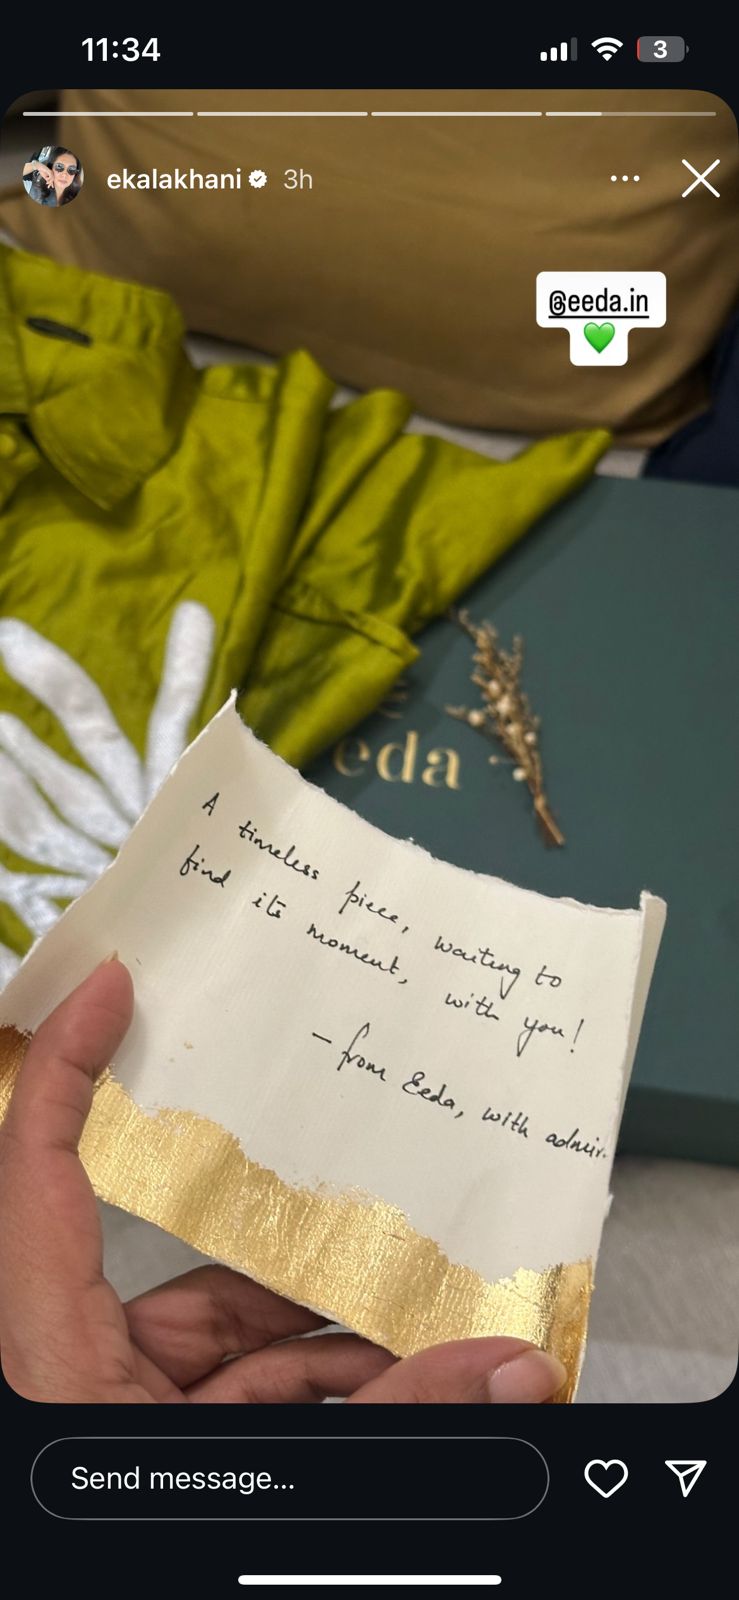 11:34
3
ekalakhani 3h
@eeda.in
eda
A timeless piece, waiting to
find its moment, with you!
- from Eeda, with admir.
Send message...